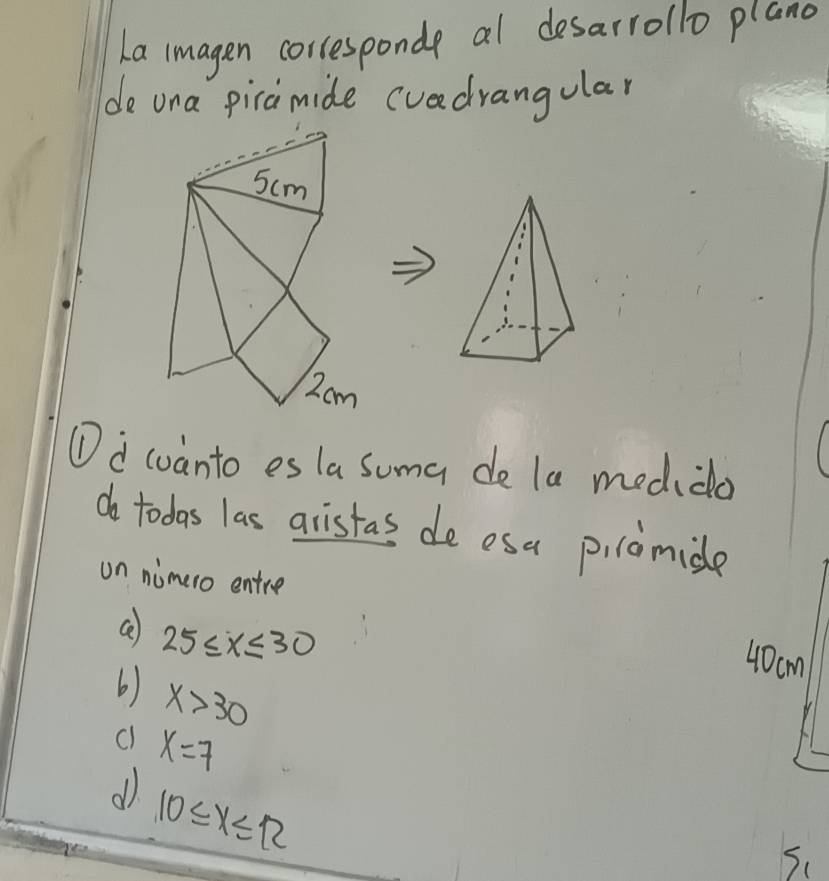 La imagen corresponde al desarrollo plano
de una pirámide cuadrangular
5cm
⇒
2cm
① ¿ cuánto es la suma de la medida
de todas las aristas de esa pirámide
un número entre
a) 25 ≤ x ≤ 30
b) x > 30
c) x = 7
d) 10 ≤ x ≤ 12
40cm
Si